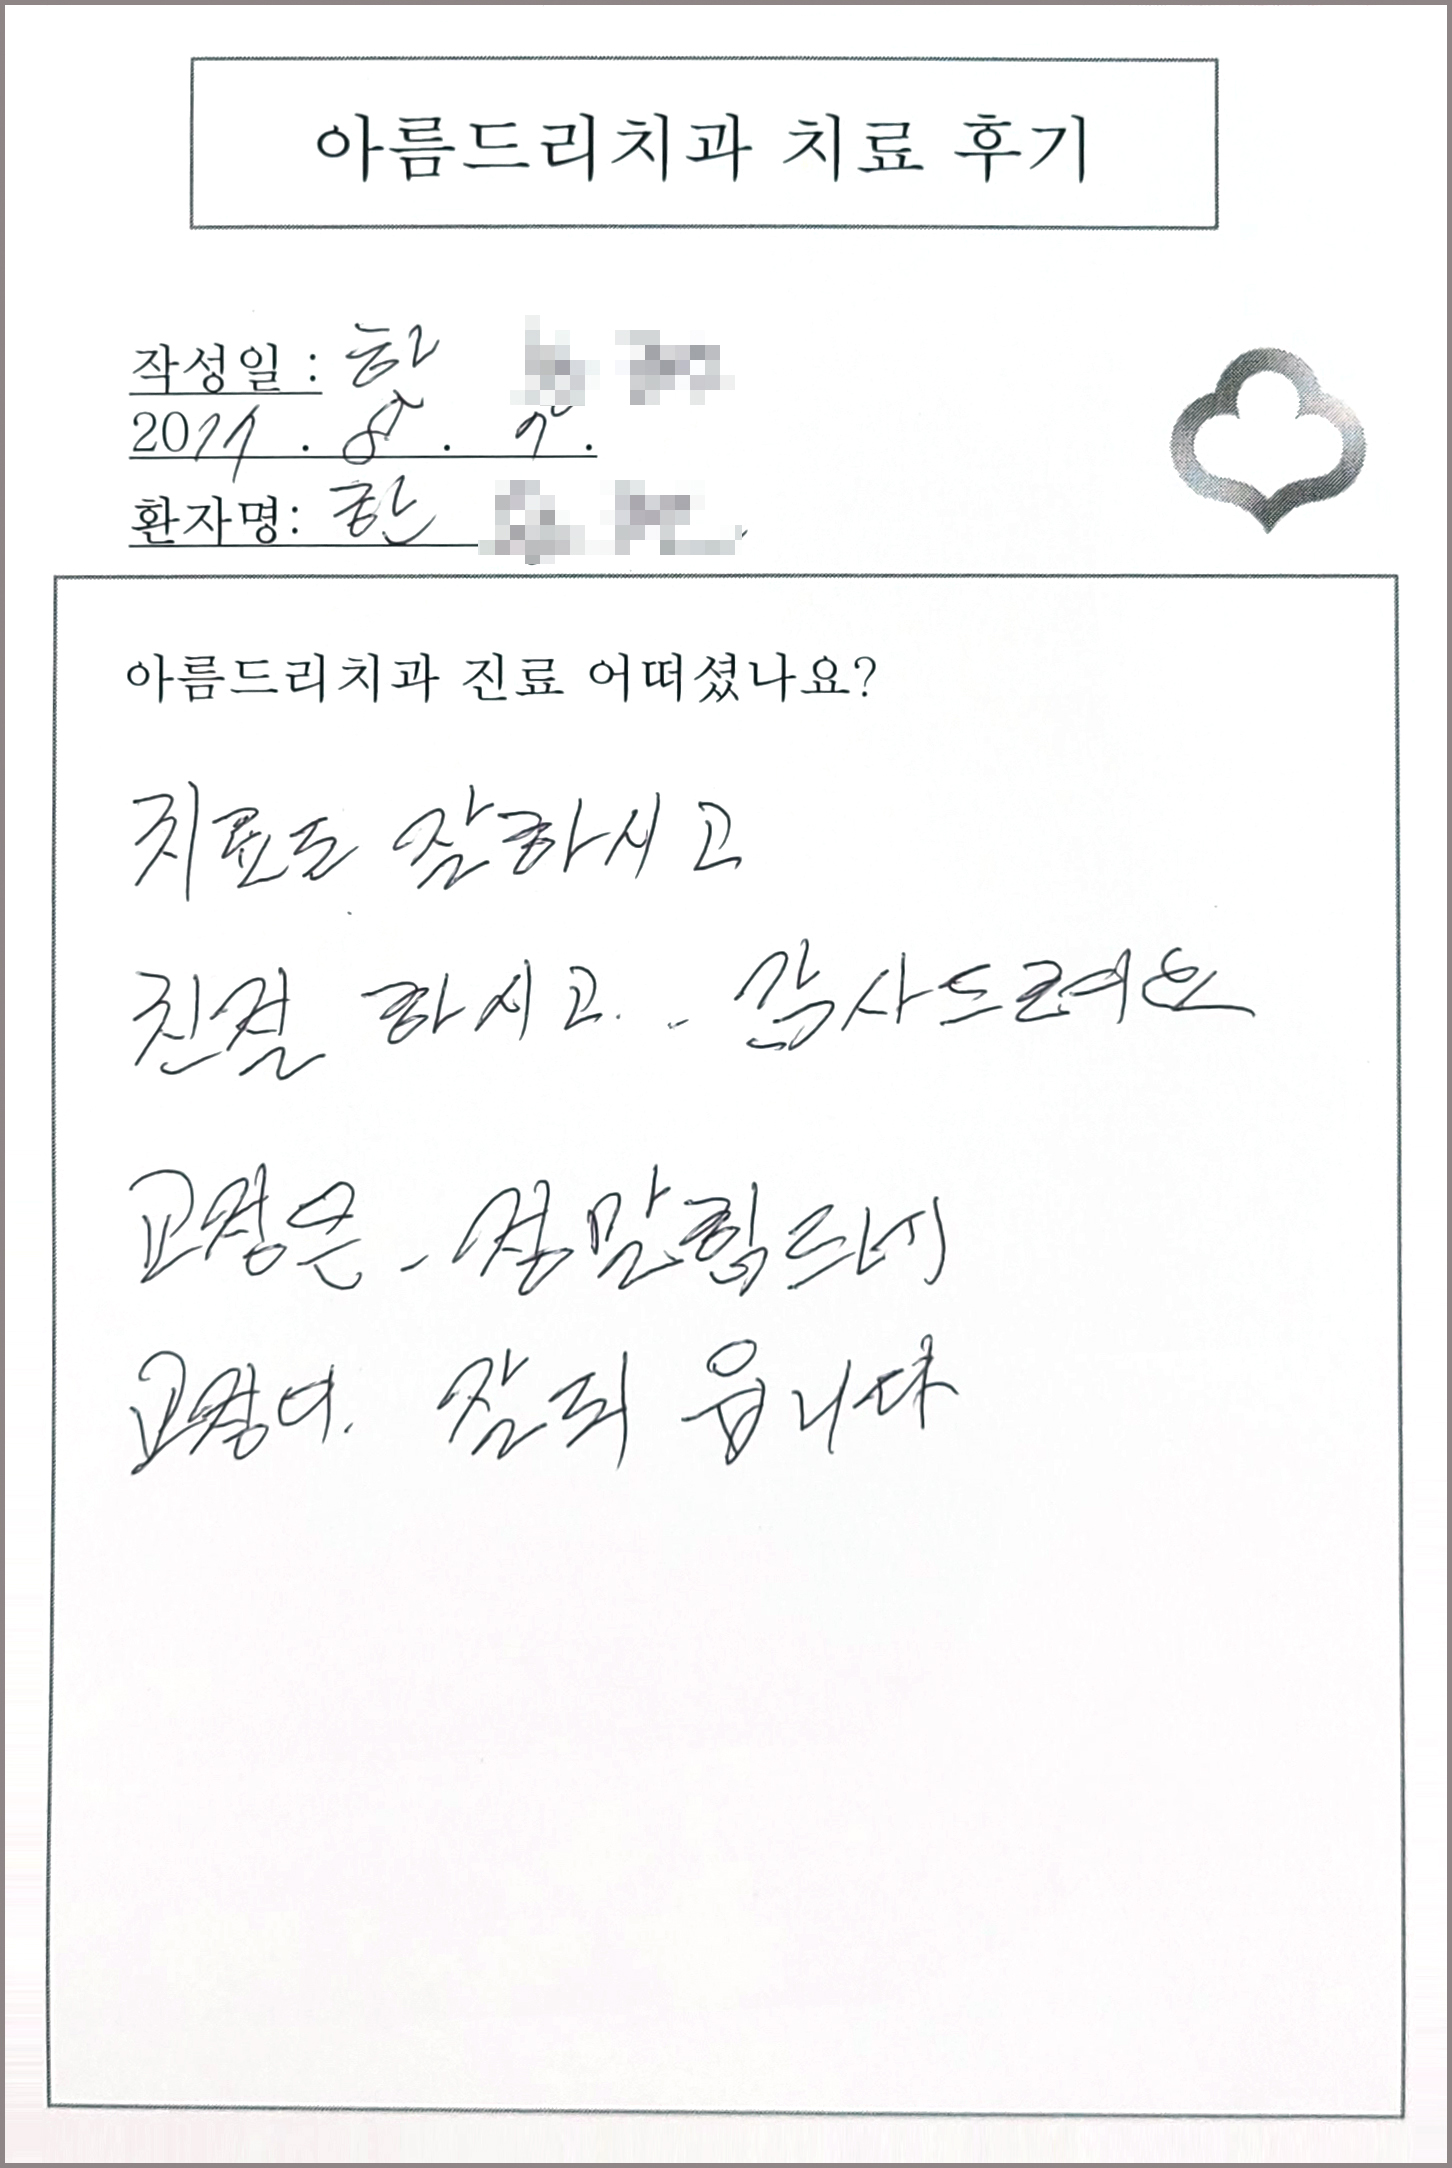 아름드리치과 치료 후기
작성일 : 한
2011 . 8 . 9 .
환자명: 한
아름드리치과 진료 어떠셨나요?
치료도 잘하시고
친절 하시고.. 감사드려요
교정은 - 정말힘드네
교정이. 잘되 웁니다